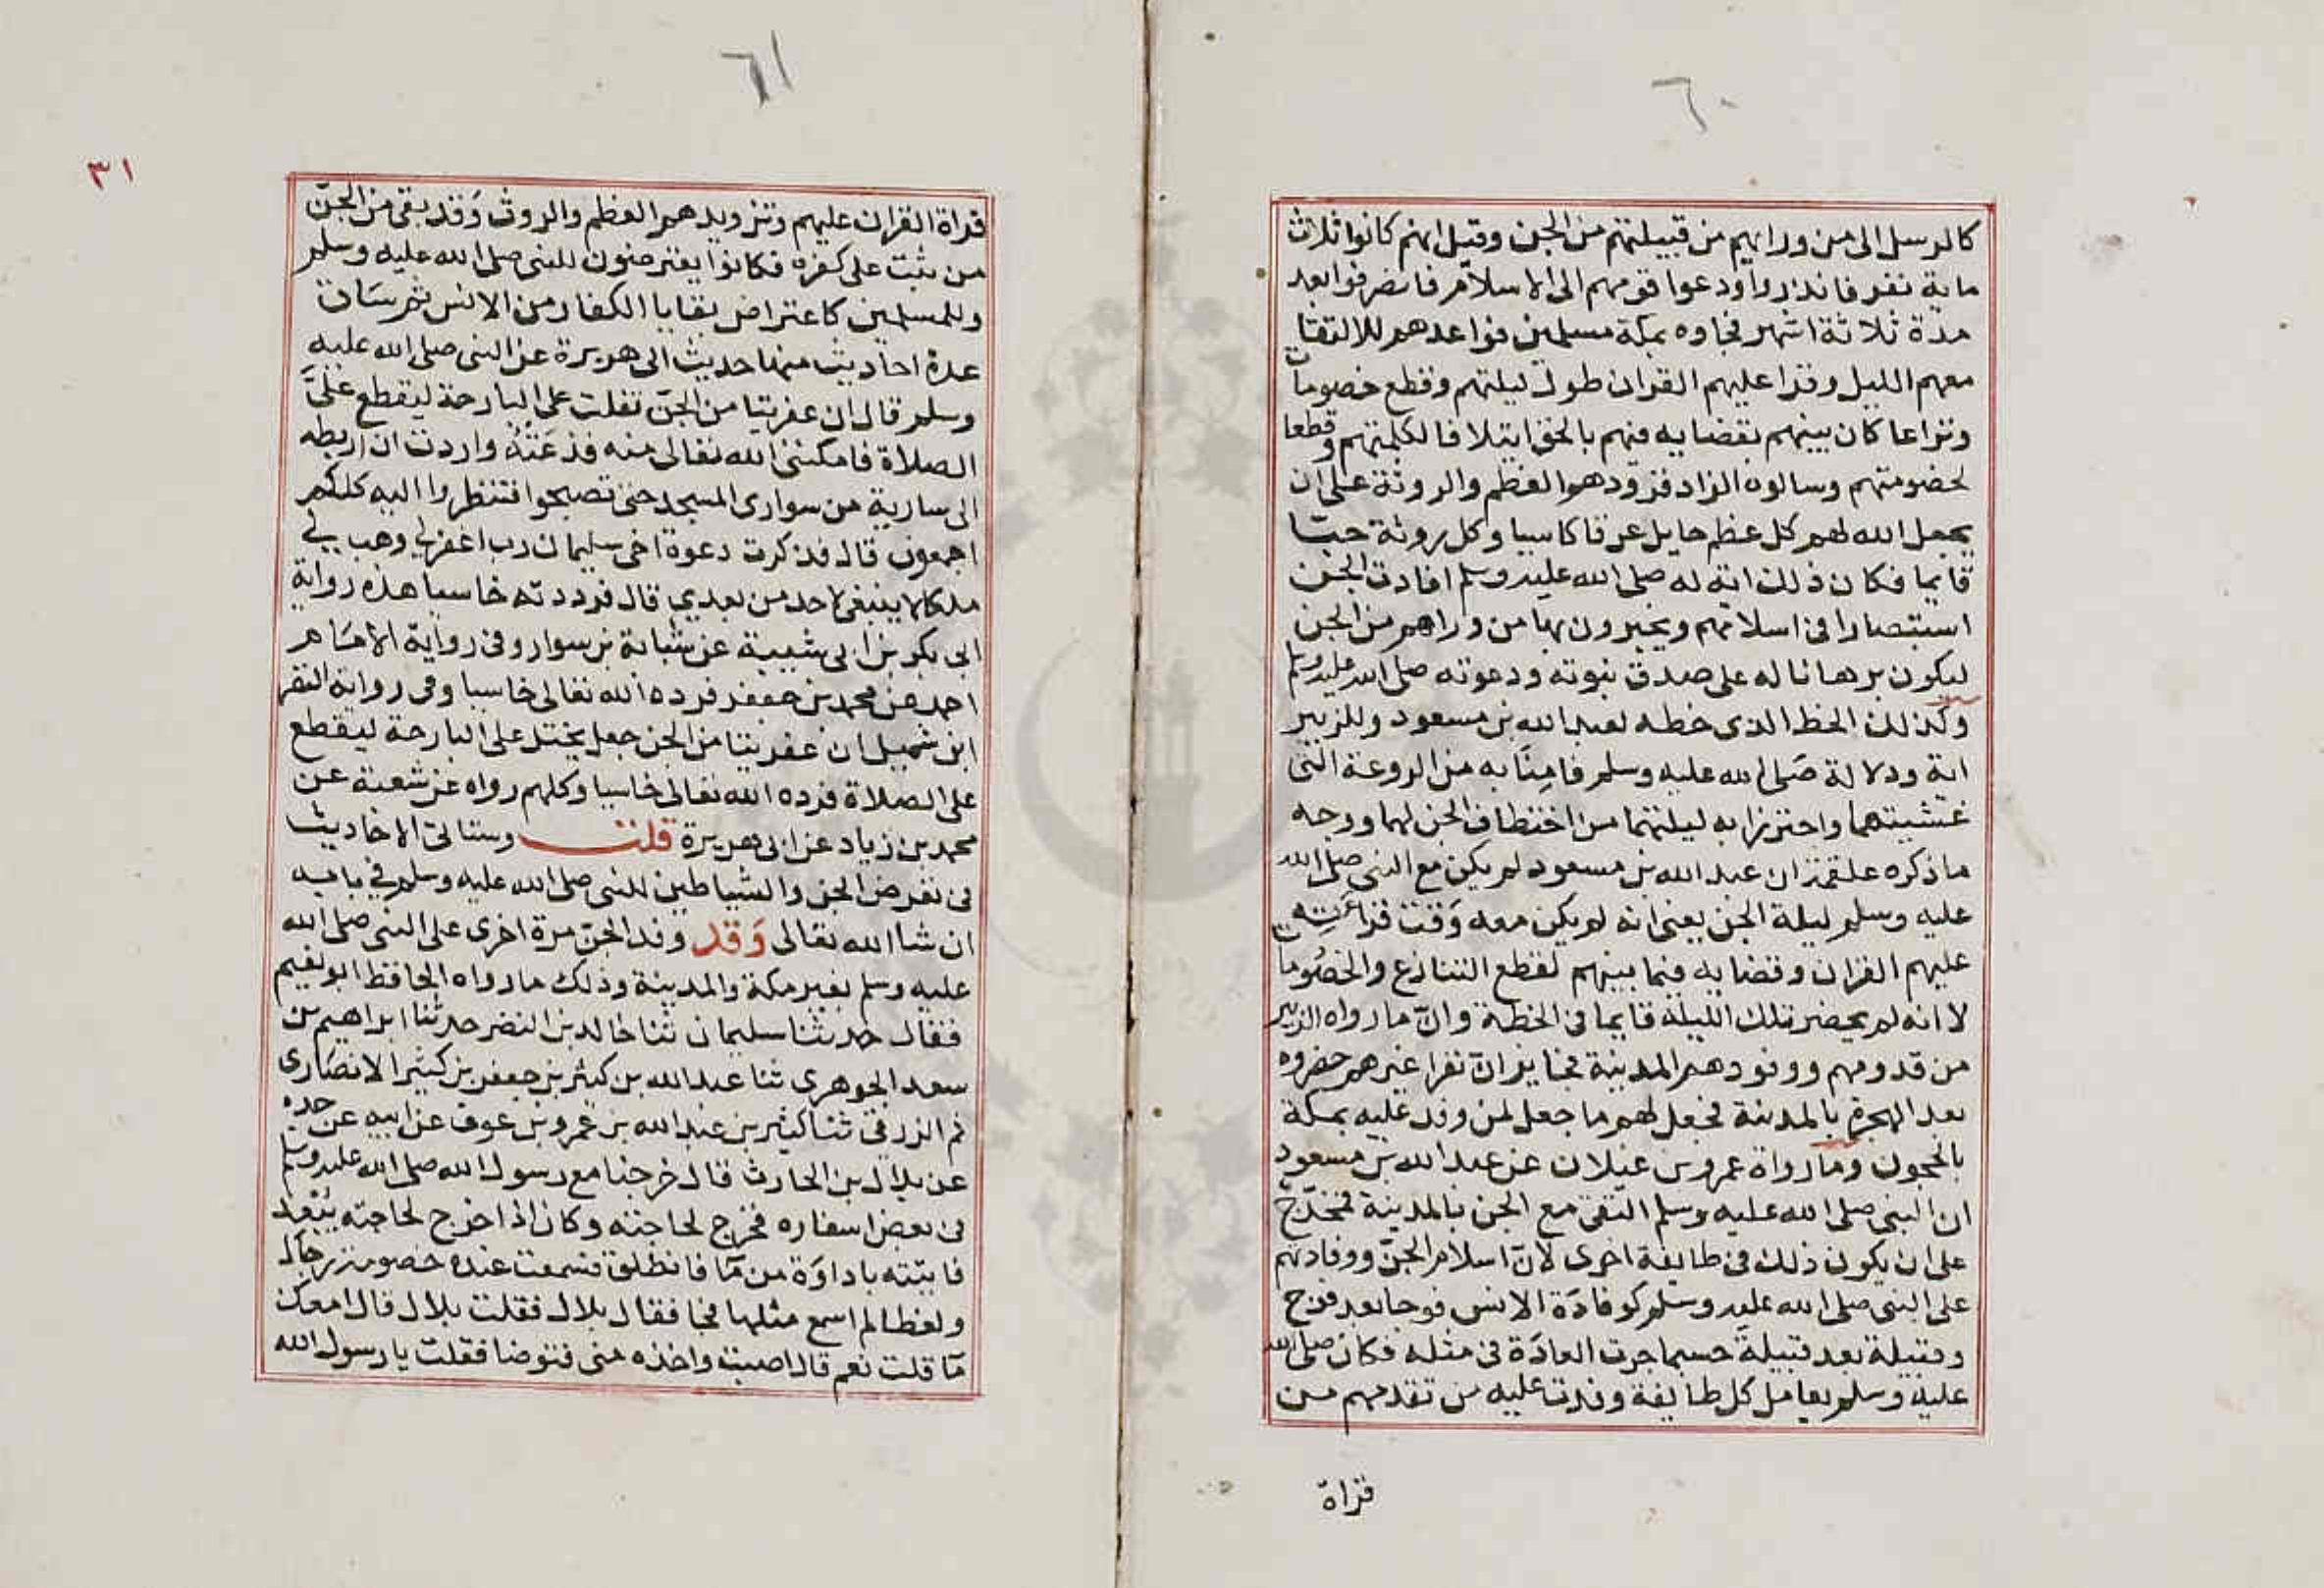 ٦٠
كالرسل الى من ورايهم من قبيلتهم من الجن وقيل انهم كانوا ثلاث
ماية نفر فانذروا ودعوا قومهم الى الاسلام فانصرفوا بعد
مدة ثلاثة اشهر فجاوه بمكة مسلمين فواعدهم للالتقا
معهم الليل وقرا عليهم القران طول ليلتهم وقطع خصومات
ونزاعا كان بينهم بقضايه فيهم بالحق ايتلافا لكلمتهم وقطعا
لخصومتهم وسالوه الزاد فزودهم العظم والروثة على ان
يجعل الله لهم كل عظم حايل عرقا كاسيا وكل روثة حبّا
قايما فكان ذلك اية له صلى الله عليه وسلم افادت الجن
استبصارا فى اسلامهم ويخبرون بها من وراهم من الجن
ليكون برهانا له على صدق نبوته ودعوته صلى الله عليه وسلم
وكذلك الخط الذى خطه لعبد الله بن مسعود وللزبير
اية ودلالة صَلى الله عليه وسلم فامِنَا به من الروعة التى
غشيتهما واحترزا به ليلتهما من اختطاف الجن لهما ووجه
ما ذكره علقمة ان عبد الله بن مسعود لم يكن مع النبى صلى الله
عليه وسلم ليلة الجن يعنى انه لم يكن معه وَقت قراءته
عليهم القران وقضايه فيما بينهم لقطع التنازع والخصُومات
لا انه لم يحضر تلك الليلة قايما فى الخطة وانّ ما رواه الزبير
من قدومهم ووفودهم المدينة فجايز انّ نفرا غيرهم حضروه
بعد الهجرة بالمدينة فجعل لهم ما جعل لمن وفد عليه بمكة
بالحجون وما رواة عمرو بن غيلان عن عبد الله بن مسعود
ان النبى صلى الله عليه وسلم التقى مع الجن بالمدينة فمخرّج
على ان يكون ذلك فى طايفة اخرى لانّ اسلام الجنّ ووفادتهم
على النبى صلى الله عليه وسلم كوفادَة الانس فوجا بعد فوج
وقبيلة بعد قبيلة حسبما جرت العادَة فى مثله فكان صلى الله
عليه وسلم يعامل كل طايفة وفدت عليه من تقدمهم من
قراة
٦١
٣١
قراة القران عليهم وتزويدهم العظم والروث وَقد بقى من الجنّ
من ثبت على كفره فكانوا يعترضون للنبى صلى الله عليه وسلم
وللمسلمين كاعتراض بقايا الكفار من الانس ثم سَاق
عدة احاديث منها حديث ابى هريرة عن النبى صلى الله عليه
وسلم قال ان عفريتا من الجنّ تفلت علىّ البارحة ليقطع علىَّ
الصلاة فامكننى الله تعالى منه فذعَتُّهُ واردت ان اربطه
الى سارية من سوارى المسجد حتى تصبحوا فتنظروا اليه كلكم
اجمعون قال فذكرت دعوة اخى سليمان رب اغفر لى وهب لى
ملكا لا ينبغى لاحد من بعدي قال فرددته خاسيا هذه رواية
ابى بكر بن ابى شيبة عن شبابة بن سوار وفى رواية الامَام
احمد عن محمد بن جعفر فرده الله تعالى خاسيا وفى رواية النضر
ابن شميل ان عفريتا من الجن جعل يختل على البارحة ليقطع
على الصلاة فرده الله تعالى خاسيا وكلهم رواه عن شعبة عن
محمد بن زياد عن ابى هريرة قلت وستاتى الاحاديث
فى تعرض الجن والشياطين للنبى صلى الله عليه وسلم فى بابه
ان شا الله تعالى وَقد وفد الجنّ مرة اخرى على النبى صلى الله
عليه وسلم بغير مكة والمدينة وذلك ما رواه الحافظ ابو نعيم
فقال حدثنا سليمان ثنا خالد بن النضر حدثنا ابراهيم بن
سعد الجوهرى ثنا عبد الله بن كثير بن جعفر بن كثير الانصَارى
ثم الزرقى ثنا كثير بن عبد الله بن عمرو بن عوف عن ابيه عن جده
عن بلال بن الحارث قال خرجنا مع رسول الله صلى الله عليه وسلم
فى بعض اسفاره فخرج لحاجته وكان اذا خرج لحاجته يبُعد
فاتيته باداوَة من مَا فانطلق فسمعت عنده خصومة رجَال
ولغطا لم اسمع مثلها فجا فقال بلال فقلت بلال قال امعك
مَا قلت نعم قال اصبت واخذه منى فتوضا فقلت يا رسول الله